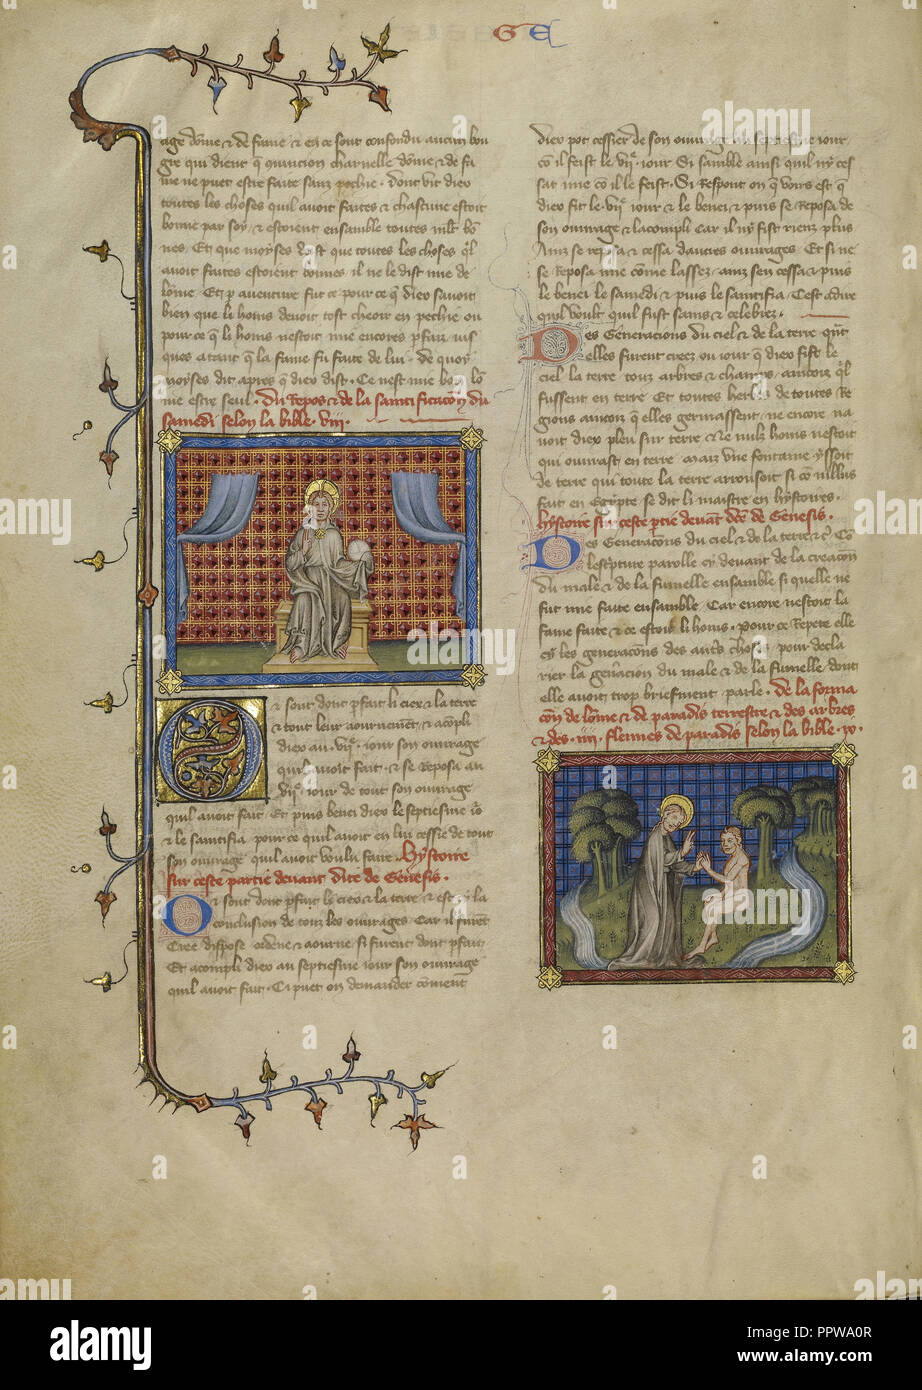 GE
toutes les choses quil avoit faites & chascune estoit
bonne par soy & estoient ensamble toutes
nes. Et que moyses toutes les choses
avoit faites estoient bonnes il ne le dist mie de
lome. Et aventure fut ce pour ce q dieu savoit
bien que li homs devoit tost cheoir en pechie ou
pour ce q li homs nestoit mie encores
ques a tant q la fame fu faite de lui. de quoy
moyses dit apres q dieu dist. Ce nest mie bon
me estre seul. Du repos & de la du
samedi selon la bible. viii.
sont dont pfait li ciex & la terre
& tout leur & acopli
dieu au. vii. iour son ouvrage
quil avoit fait. & se reposa au
vii. iour de tout son ouvrage
quil avoit fait. Et puis benei dieu le septiesme
& le saintifia pour ce quil avoit en lui cesse de tout
son ouvrage quil avoit voulu faire. hystoire
sur ceste partie devant dite de Genesis.
Or sont dont pfait li ciex & la terre & est la
conclusion de touz les ouvrages. Car il furent
Cree dispose ordene & aourne si furent dont pfait
Et acompli dieu au septiesme iour son ouvrage
quil avoit fait. Ci puet on demander coment
dieu pot cessier de son ouvrage au septiesme iour
co il feist le vii. iour Si samble ainsi quil ny ces
sat mie co il le feist. Si respont on q voirs est q
dieu fit le vii iour & le benei & puis se reposa de
son ouvrage & lacompli Car il ny fist riens plus
Ainz se reposa & cessa dautres ouvrages. Et si ne
se reposa mie come lassez ainz sen cessa & puis
le benei le samedi & puis le saintifia. Cest adire
quil voult quil fust sains & celebrez.
Des Generacions du ciel & de la terre
elles furent creez ou iour q dieu fist le
ciel la terre touz arbres & champs aincois
fussent en terre. Et toutes herbes de toutes re
gions aincois q elles germassent. ne encore na
voit dieu pleu sur terre & ne nulz homs nestoit
qui ouvrast en terre. Maiz une fontaine yssoit
de terre qui toute la terre arrousoit si co nillus
fait en Egypte se dit li maistre en hystoires.
hystoire sur ceste ptie devant dte de Genesis.
Des Generacons du ciel & de la terre
lescripture parolle cy devant de la creacon
du masle & de la fumelle ensamble si quelle ne
fut mie faite ensamble. Car encore nestoit la
fame faite & ce estoit li homs. pour ce repete elle
cy les generacons des choses pour decla
rier la du male & de la fumelle dont
elle avoit trop briefment parle. de la forma
con de lome & de paradis terrestre & des arbres
& des .iiii. fleuves de paradis selon la bible.
alamy
Image ID: PPWA0R
www.alamy.com